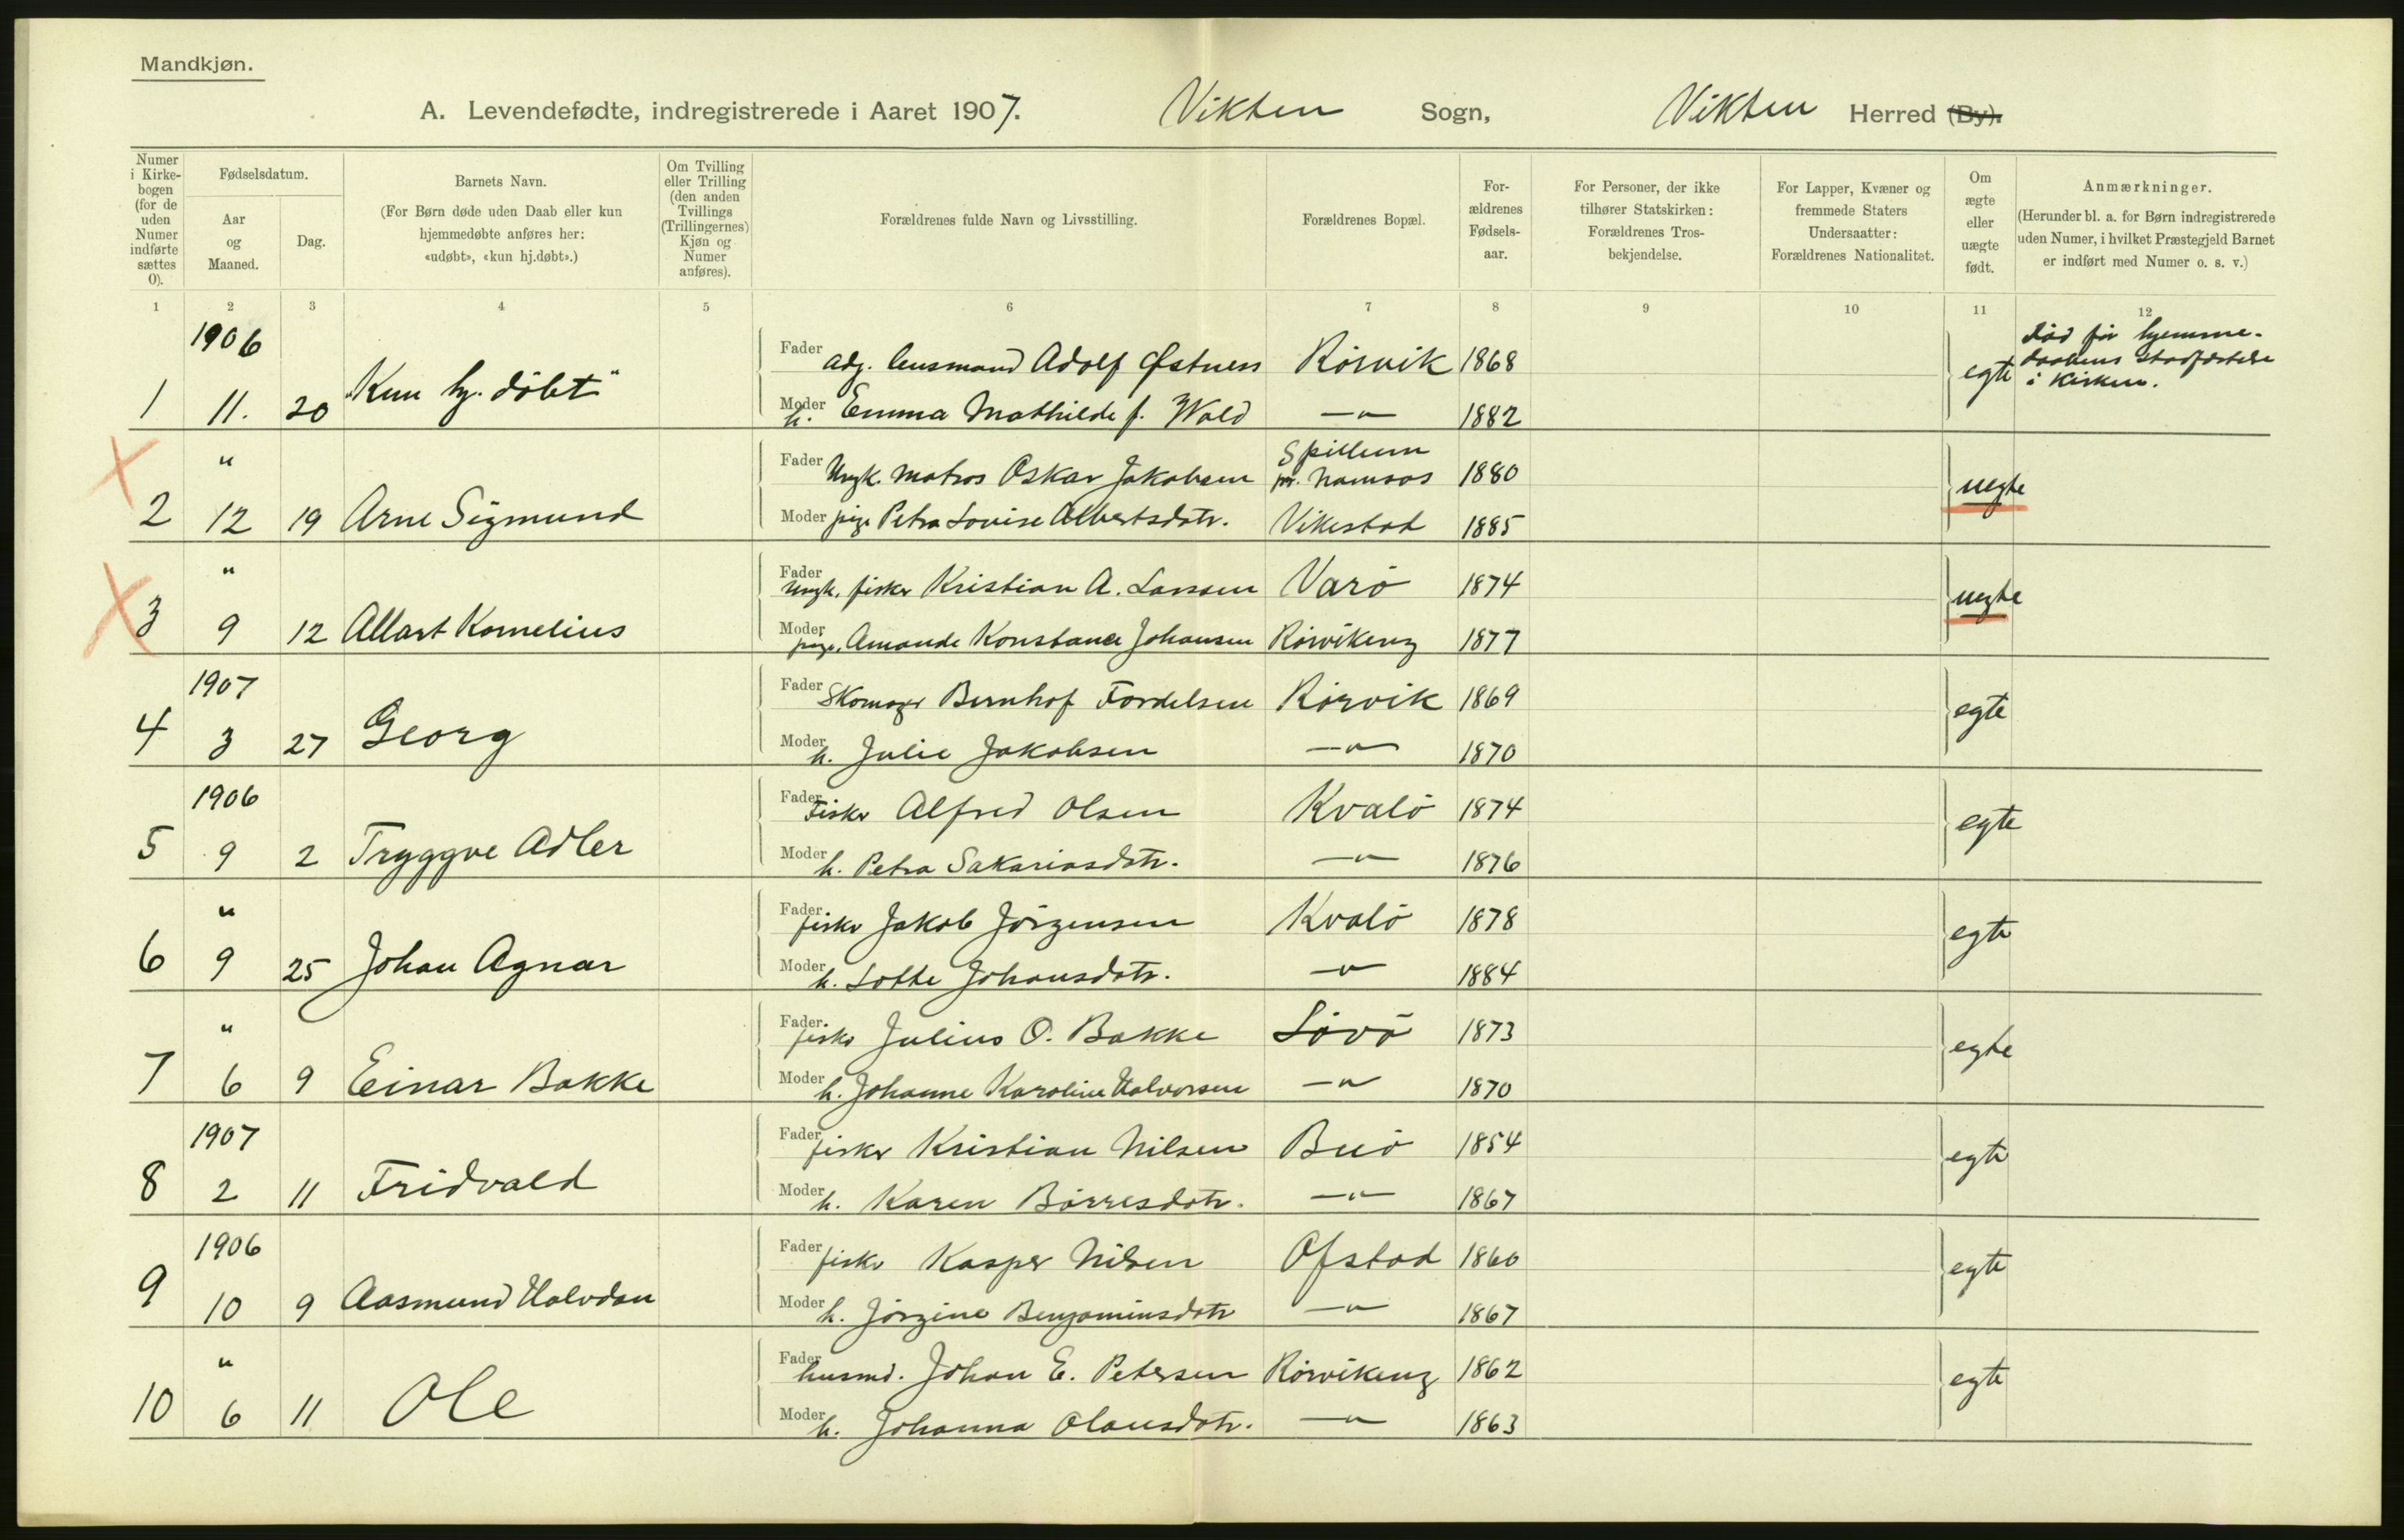 Mandkjøn.
A. Levendefødte, indregistrerede i Aaret 1907. Vikten Sogn, Vikten Herred (By).
Numer i Kirke-bogen (for de uden Numer indførte sættes 0).
Fødselsdatum.
Aar og Maaned.
Dag.
Barnets Navn.
(For Børn døde uden Daab eller kun hjemmedøbte anføres her: «udøbt», «kun hj.døbt».)
Om Tvilling eller Trilling (den anden Tvillings (Trillingernes) Kjøn og Numer anføres).
Forældrenes fulde Navn og Livsstilling.
Forældrenes Bopæl.
For-ældrenes Fødsels-aar.
For Personer, der ikke tilhører Statskirken: Forældrenes Tros-bekjendelse.
For Lapper, Kvæner og fremmede Staters Undersaatter: Forældrenes Nationalitet.
Om ægte eller uægte født.
Anmærkninger.
(Herunder bl. a. for Børn indregistrerede uden Numer, i hvilket Præstegjeld Barnet er indført med Numer o. s. v.)
1 2 3 4 5 6 7 8 9 10 11 12
1906
Fader adj. lensmand Adolf Østness Rörvik 1868
1 11. 20 "Kun hj. döbt" egte
Død før hjemme-
daabens stadfæstelse
i Kirken.
Moder h. Emma Mathilde f. Wold —"— 1882
" Fader Ungk. matros Oskar Jakobsen Spillum pr. Namsos 1880
2 12 19 Arne Sigmund uegte
Moder pige Petra Lovise Albertsdatr. Vikestad 1885
" Fader Ungk. fisker Kristian A. Larssen Varö 1874
3 9 12 Allart Kornelius uegte
Moder pige. Amanda Konstance Johansen Rörvikeng 1877
1907 Fader Skomager Bernhof Fordelsen Rörvik 1869
4 3 27 Georg egte
Moder h. Julie Jakobsen —"— 1870
1906 Fader Fisker Alfred Olsen Kvalö 1874
5 9 2 Tryggve Adler egte
Moder h. Petra Sakariasdatr. —"— 1876
" Fader fisker Jakob Jörgensen Kvalö 1878
6 9 25 Johan Agnar egte
Moder h. Lotte Johansdatr. —"— 1884
" Fader fisker Julius O. Bakke Lövö 1873
7 6 9 Einar Bakke egte
Moder h. Johanne Karoline Halvorsen —"— 1870
1907 Fader fisker Kristian Nilsen Buö 1854
8 2 11 Fridvald egte
Moder h. Karen Börresdatr. —"— 1867
1906 Fader fisker Kasper Nilsen Ofstad 1860
9 10 9 Aasmund Halvdan egte
Moder h. Jörgine Benjaminsdatr —"— 1867
" Fader husmd. Johan E. Petersen Rörvikeng 1862
10 6 11 Ole egte
Moder h. Johanna Olausdatr. —"— 1863